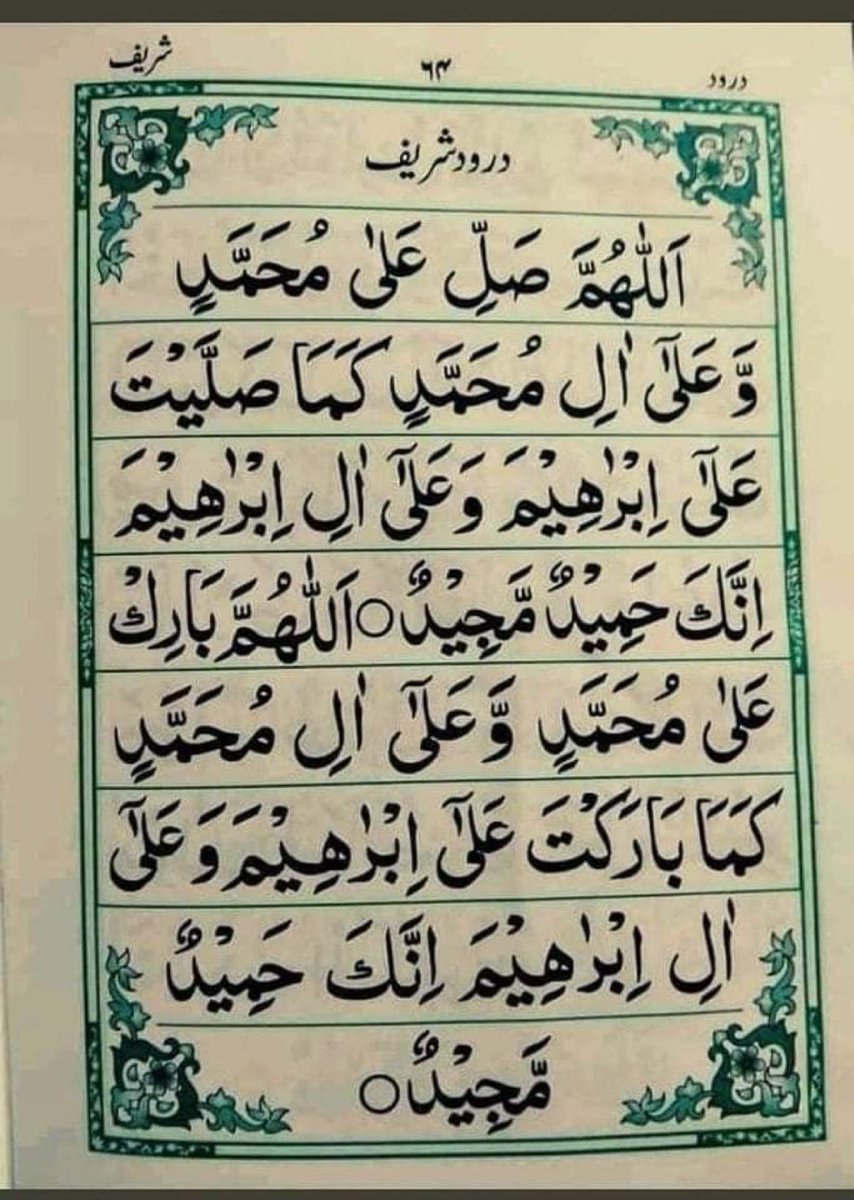 درود ۶۴ شریف
درود شریف
اَللّٰهُمَّ صَلِّ عَلٰى مُحَمَّدٍ
وَّعَلٰٓى اٰلِ مُحَمَّدٍ كَمَا صَلَّيْتَ
عَلٰٓى اِبْرٰهِيْمَ وَعَلٰٓى اٰلِ اِبْرٰهِيْمَ
اِنَّكَ حَمِيْدٌ مَّجِيْدٌ○ اَللّٰهُمَّ بَارِكْ
عَلٰى مُحَمَّدٍ وَّعَلٰٓى اٰلِ مُحَمَّدٍ
كَمَا بَارَكْتَ عَلٰٓى اِبْرٰهِيْمَ وَعَلٰٓى
اٰلِ اِبْرٰهِيْمَ اِنَّكَ حَمِيْدٌ
مَّجِيْدٌ○